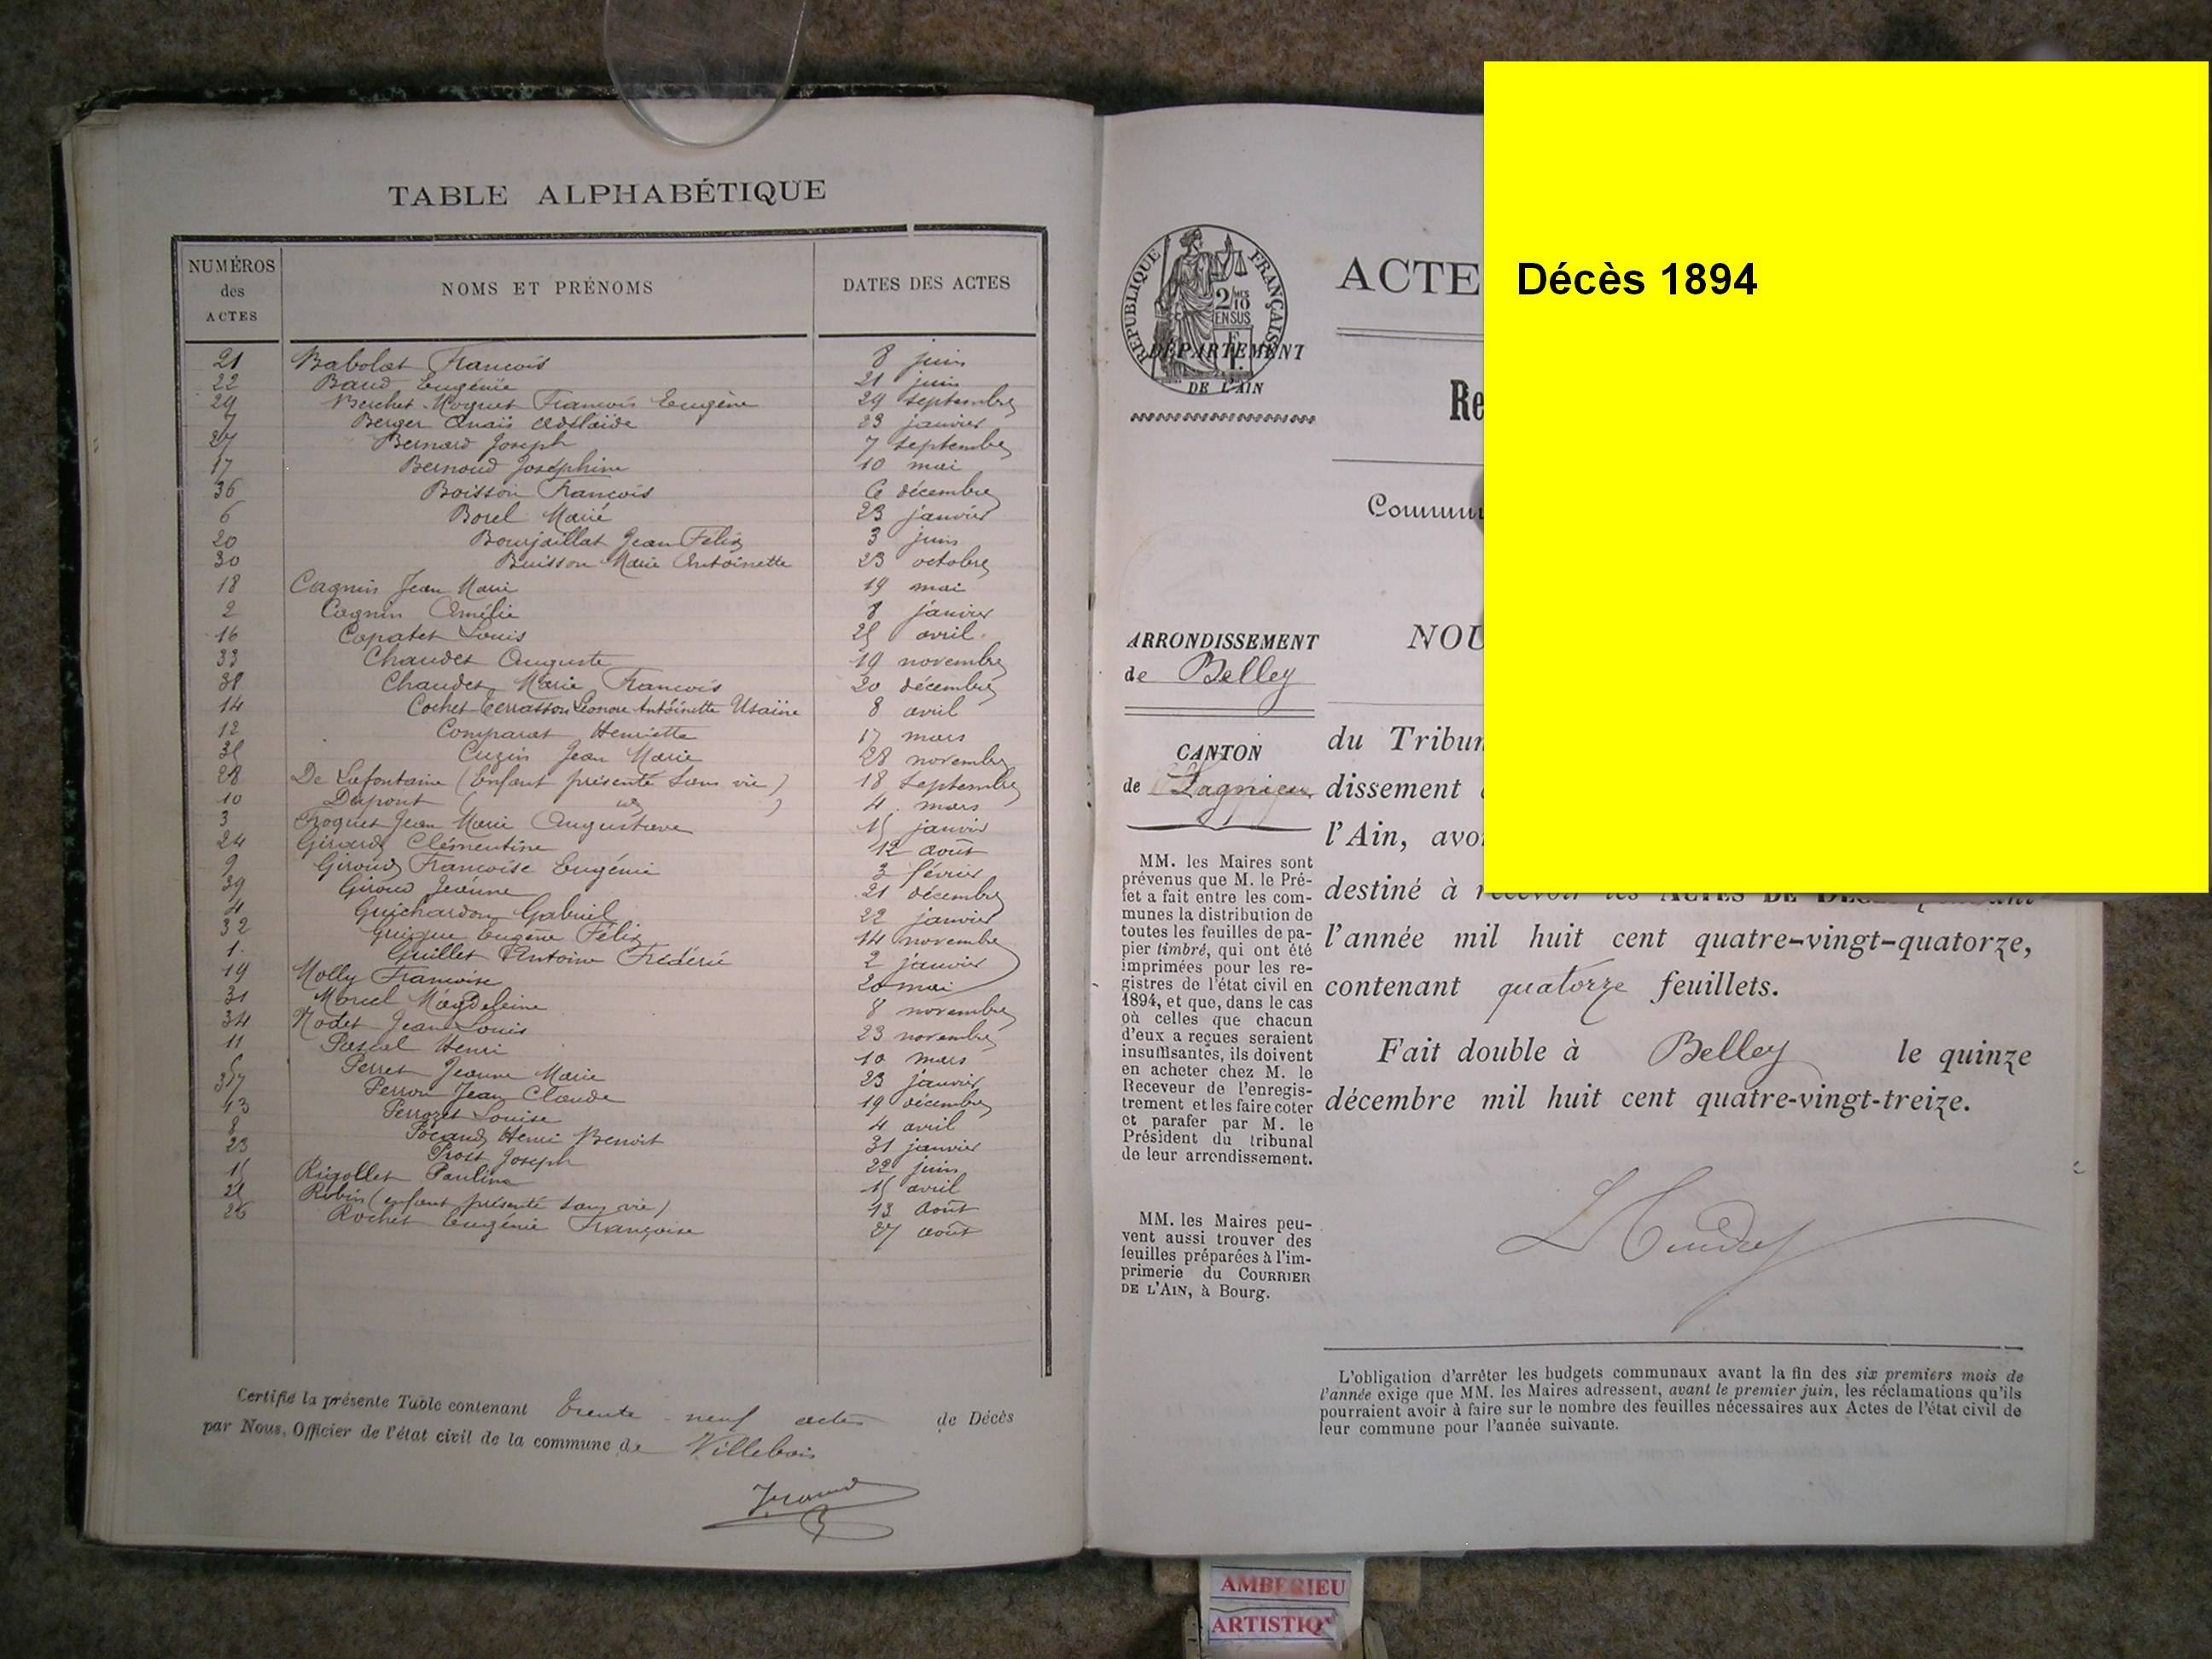 TABLE ALPHABÉTIQUE
NUMÉROS des ACTES NOMS ET PRÉNOMS DATES DES ACTES
21 Babolat François 8 juin
22 Baud Eugénie 21 juin
29 Berchet-Moguet François Eugène 29 septembre
7 Berger Anaïs Adélaïde 23 janvier
27 Bernard Joseph 7 septembre
17 Bernoud Joséphine 10 mai
36 Boisson François 6 décembre
6 Borel Marie 23 janvier
20 Bourjaillat Jean Félix 3 juin
30 Buisson Marie Antoinette 23 octobre
18 Cagnin Jean Marie 19 mai
2 Cagnin Amélie 8 janvier
16 Capatet Louis 25 avril
33 Chaudet Auguste 19 novembre
38 Chaudet Marie François 20 décembre
14 Cochet Léonore Antoinette 8 avril
12 Comparat Henriette 17 mars
35 Cuzin Jean Marie 28 novembre
28 De Lafontaine (Enfant présenté sans vie) 18 septembre
10 Dupont ( ) 4 mars
3 Jean Marie 15 janvier
24 Girard Clémentine 12 août
9 Giroud Françoise Eugénie 3 février
39 Giroud Jeanne 21 décembre
4 Guichardon Gabriel 22 janvier
32 Guigue Eugène Félix 14 novembre
1 Guillet Antoine Frédéric 2 janvier
19 Molly Françoise 20 mai
31 Morcel Magdeleine 8 novembre
34 Nodet Jean Louis 23 novembre
11 Pascal Henri 10 mars
5 Perret Jeanne Marie 23 janvier
37 Perron Jean Claude 19 décembre
13 Perrozet Louise 4 avril
8 Pocand Henri Benoit 31 janvier
23 Prost Joseph 22 juin
15 Rigollet Pauline 15 avril
25 Robin (enfant présenté sans vie) 13 août
26 Rochet Eugénie Françoise 27 août
Certifié la présente Table contenant trente-neuf actes de Décès
par Nous, Officier de l'état civil de la commune de Villebois
RÉPUBLIQUE FRANÇAISE
2/10 EN SUS
DÉPARTEMENT
DE L'AIN
ARRONDISSEMENT
de Belley
CANTON
de Lagnieu
MM. les Maires sont
prévenus que M. le Pré-
fet a fait entre les com-
munes la distribution de
toutes les feuilles de pa-
pier timbré, qui ont été
imprimées pour les re-
gistres de l'état civil en
1894, et que, dans le cas
où celles que chacun
d'eux a reçues seraient
insuffisantes, ils doivent
en acheter chez M. le
Receveur de l'enregis-
trement et les faire coter
et parafer par M. le
Président du tribunal
de leur arrondissement.
MM. les Maires peu-
vent aussi trouver des
feuilles préparées à l'im-
primerie du COURRIER
DE L'AIN, à Bourg.
ACTE
Re
Commun
NOU
du Tribun
dissement
l'Ain, avo
destiné à recevoir les ACTES DE DÉCÈS pendant
l'année mil huit cent quatre-vingt-quatorze,
contenant quatorze feuillets.
Fait double à Belley le quinze
décembre mil huit cent quatre-vingt-treize.
L'obligation d'arrêter les budgets communaux avant la fin des six premiers mois de
l'année exige que MM. les Maires adressent, avant le premier juin, les réclamations qu'ils
pourraient avoir à faire sur le nombre des feuilles nécessaires aux Actes de l'état civil de
leur commune pour l'année suivante.
Décès 1894
AMBERIEU
ARTISTIQ